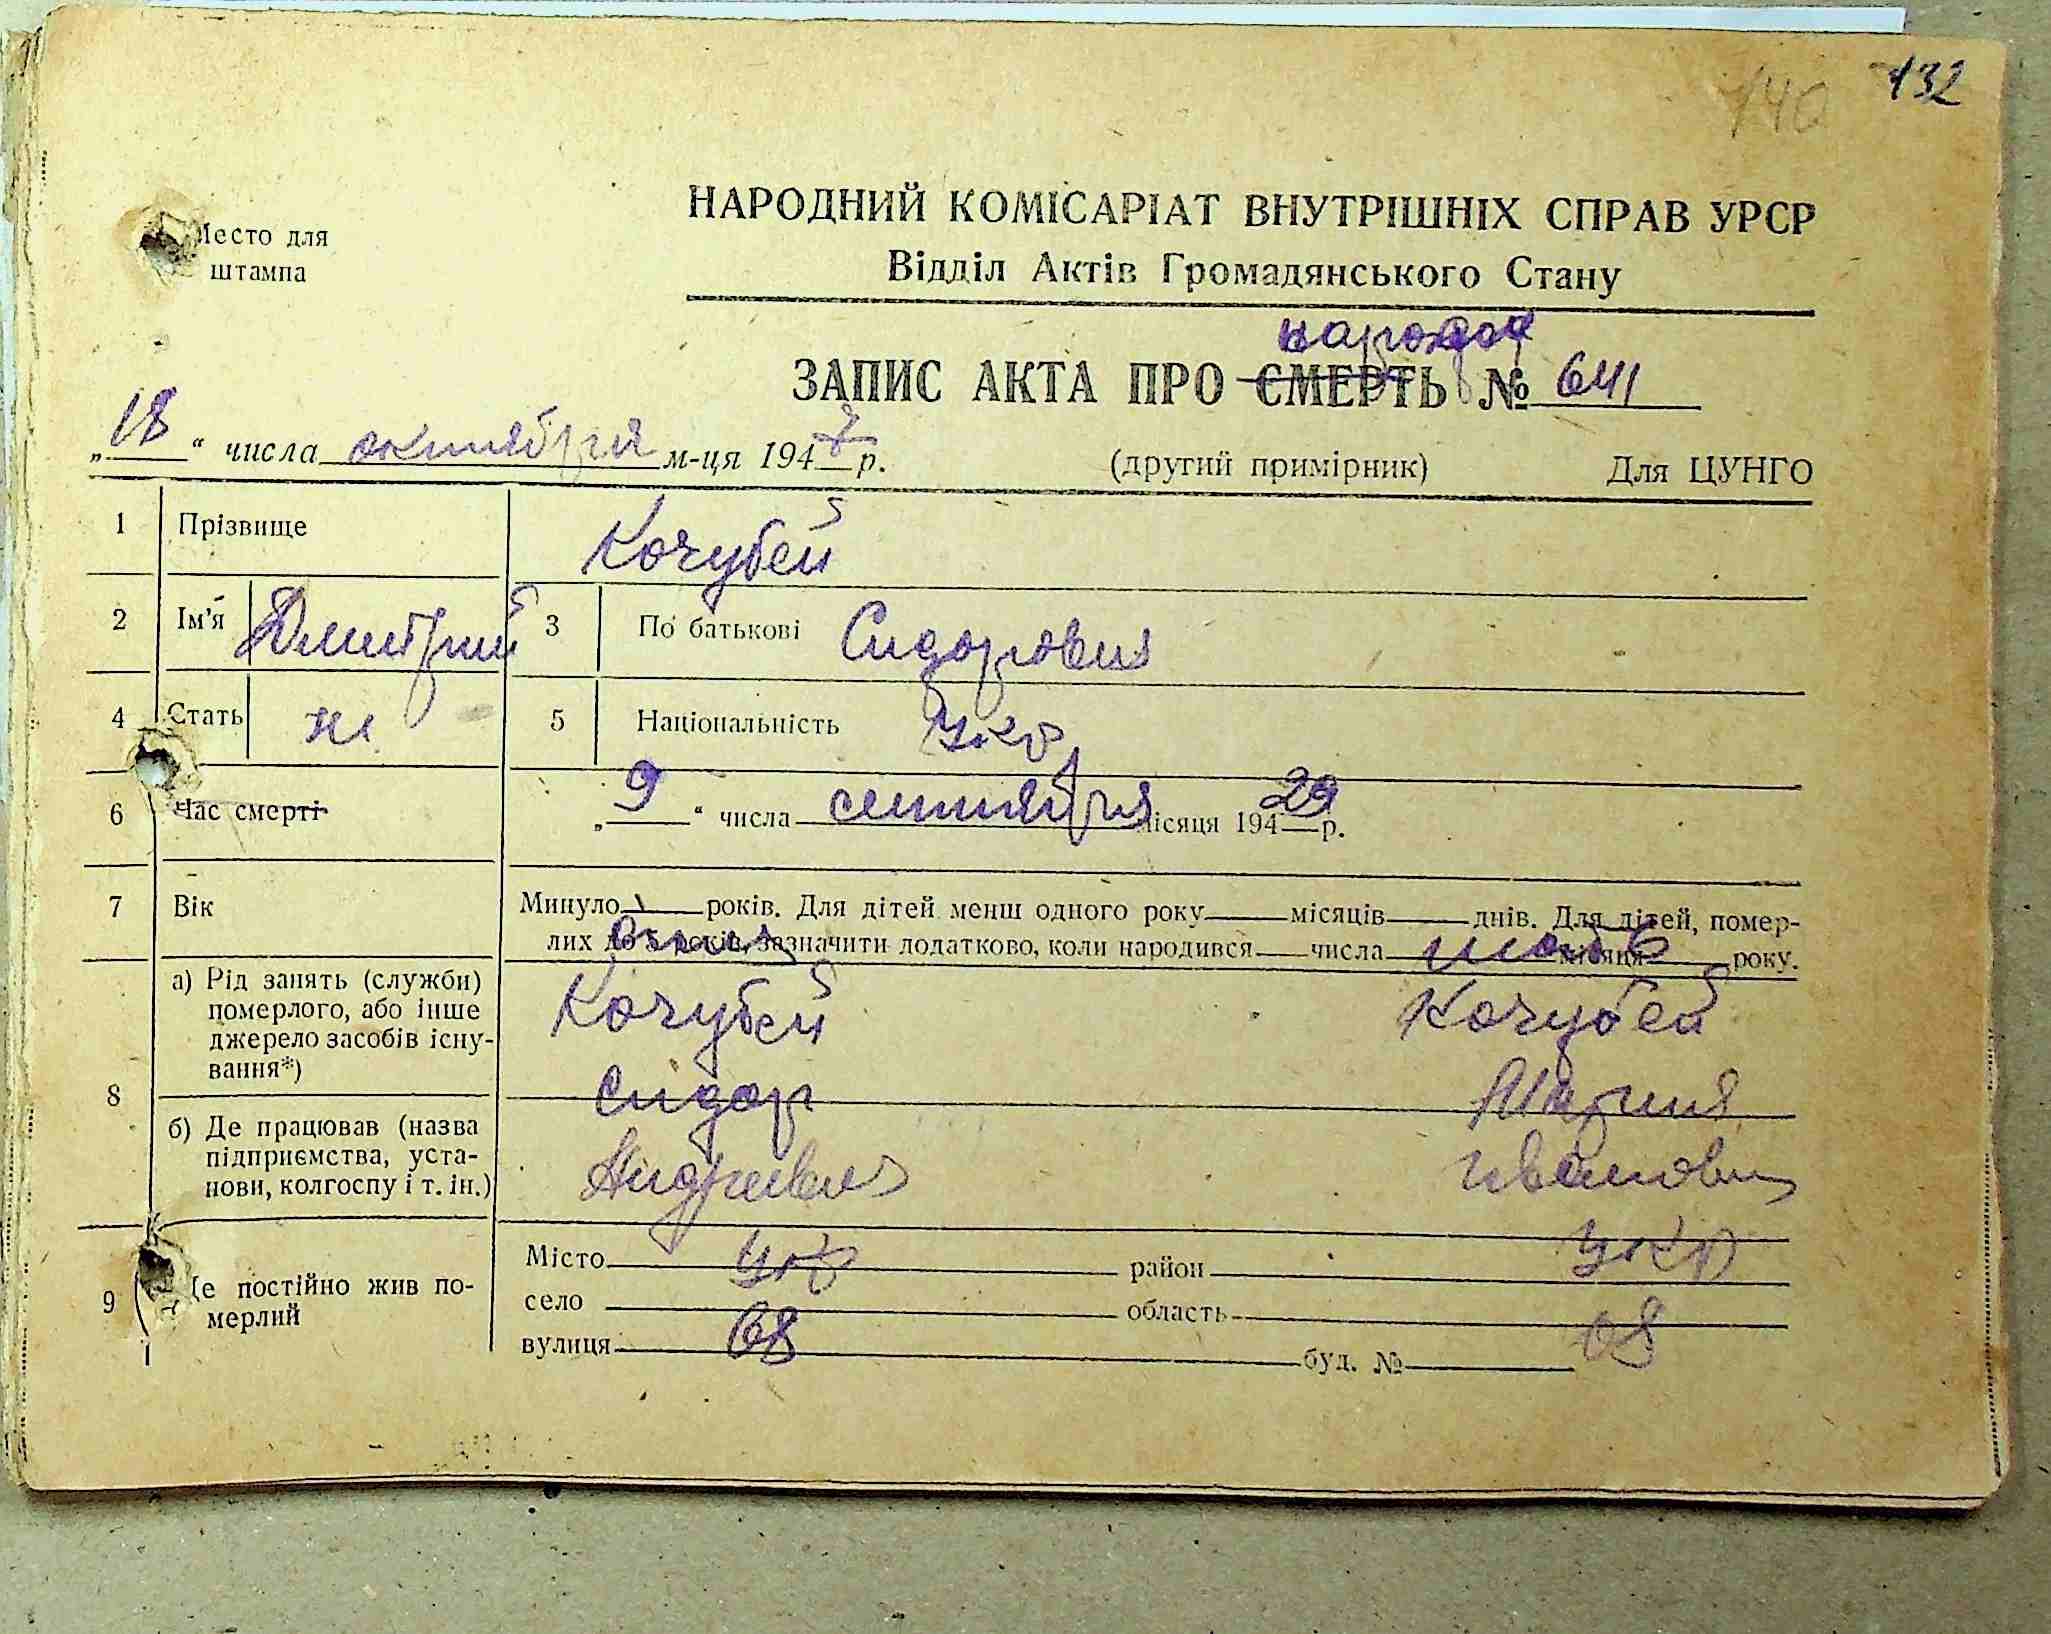 132
140
Место для
штампа
НАРОДНИЙ КОМІСАРІАТ ВНУТРІШНІХ СПРАВ УРСР
Відділ Актів Громадянського Стану
ЗАПИС АКТА ПРО СМЕРТЬ № 641
„18“ числа октября м-ця 194 р.
(другий примірник) Для ЦУНГО
1 Прізвище Кочубей
2 Ім'я Дмитрий 3 По батькові Сидорович
4 Стать м 5 Національність Укр
6 Час смерті „9“ числа сентября місяця 194 29 р.
7 Вік Минуло року років. Для дітей менш одного року місяців днів. Для дітей, помер-
лих до 5 років, зазначити додатково, коли народився числа місяця року.
отец мать
8 а) Рід занять (служби)
померлого, або інше
джерело засобів існу-
вання*)
Кочубей Кочубей
Сидор Мария
б) Де працював (назва
підприємства, уста-
нови, колгоспу і т. ін.)
Андреевич Ивановна
9 Де постійно жив по-
мерлий
Місто укр район укр
село область
вулиця 68 буд. № 08